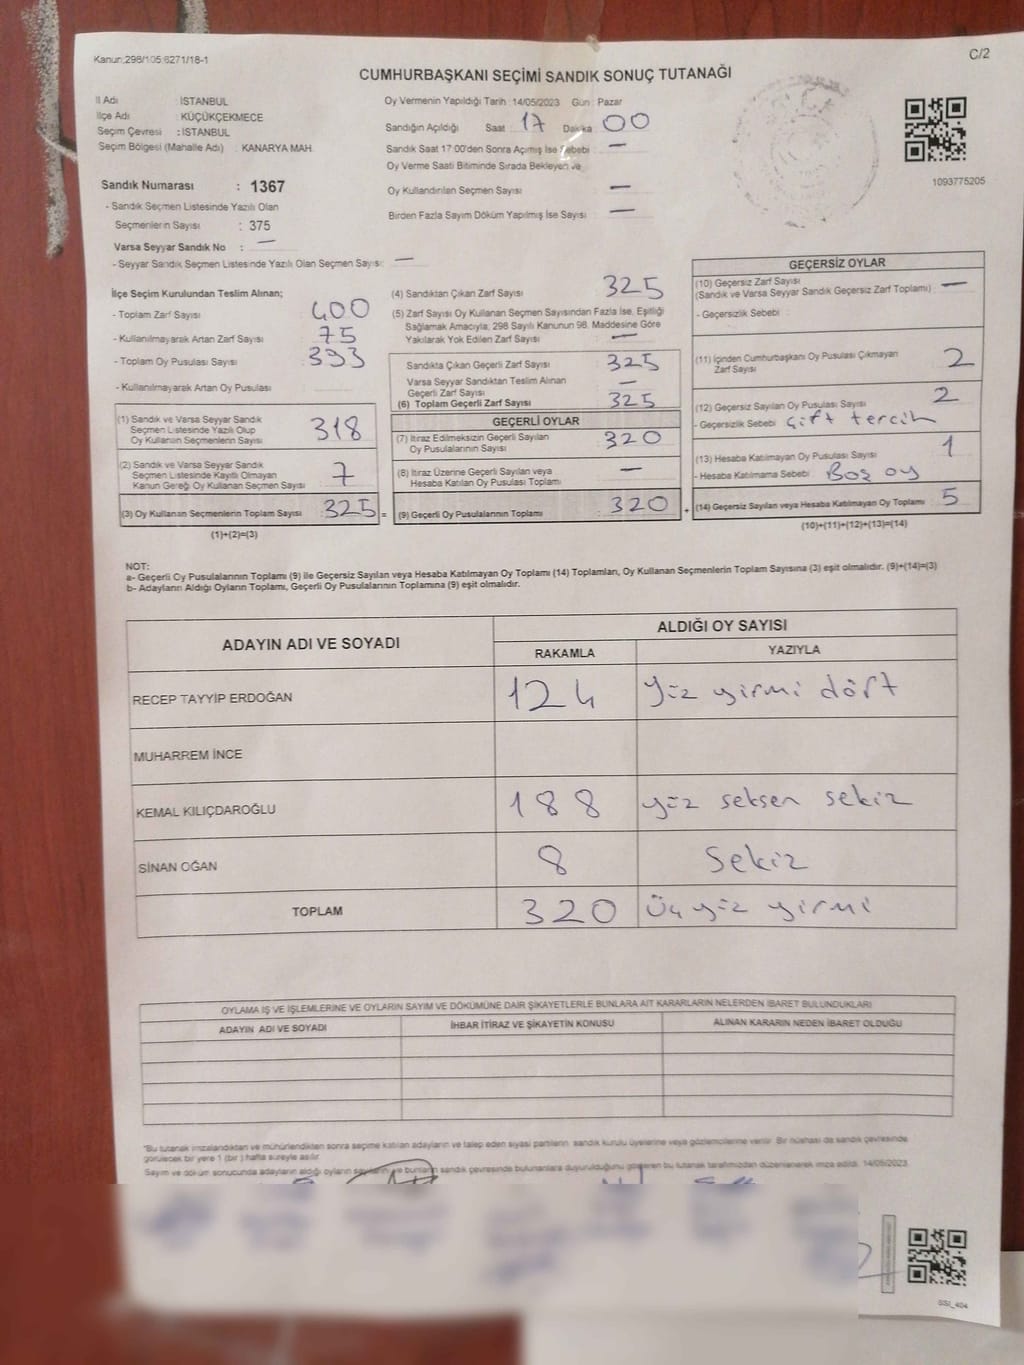 Kanun:298/105;6271/18-1
C/2
CUMHURBAŞKANI SEÇİMİ SANDIK SONUÇ TUTANAĞI
İl Adı : İSTANBUL
İlçe Adı : KÜÇÜKÇEKMECE
Seçim Çevresi : İSTANBUL
Seçim Bölgesi (Mahalle Adı) : KANARYA MAH.
Sandık Numarası : 1367
- Sandık Seçmen Listesinde Yazılı Olan
Seçmenlerin Sayısı : 375
Varsa Seyyar Sandık No : —
- Seyyar Sandık Seçmen Listesinde Yazılı Olan Seçmen Sayısı: —
Oy Vermenin Yapıldığı Tarih :14/05/2023 Gün : Pazar
Sandığın Açıldığı Saat : 17 Dakika : 00
Sandık Saat 17:00'den Sonra Açımış İse Sebebi : —
Oy Verme Saati Bitiminde Sırada Bekleyen ve
Oy Kullandırılan Seçmen Sayısı : —
Birden Fazla Sayım Döküm Yapılmış İse Sayısı : —
1093775205
İlçe Seçim Kurulundan Teslim Alınan;
- Toplam Zarf Sayısı : 400
- Kullanılmayarak Artan Zarf Sayısı : 75
- Toplam Oy Pusulası Sayısı : 393
- Kullanılmayarak Artan Oy Pusulası :
(1) Sandık ve Varsa Seyyar Sandık
Seçmen Listesinde Yazılı Olup
Oy Kullanan Seçmenlerin Sayısı : 318
(2) Sandık ve Varsa Seyyar Sandık
Seçmen Listesinde Kayıtlı Olmayan
Kanun Gereği Oy Kullanan Seçmen Sayısı : 7
(3) Oy Kullanan Seçmenlerin Toplam Sayısı : 325 =
(1)+(2)=(3)
(4) Sandıktan Çıkan Zarf Sayısı : 325
(5) Zarf Sayısı Oy Kullanan Seçmen Sayısından Fazla İse, Eşitliği
Sağlamak Amacıyla, 298 Sayılı Kanunun 98. Maddesine Göre
Yakılarak Yok Edilen Zarf Sayısı : —
Sandıkta Çıkan Geçerli Zarf Sayısı : 325
Varsa Seyyar Sandıktan Teslim Alınan
Geçerli Zarf Sayısı : —
(6) Toplam Geçerli Zarf Sayısı : 325
GEÇERLİ OYLAR
(7) İtiraz Edilmeksizin Geçerli Sayılan
Oy Pusulalarının Sayısı : 320
(8) İtiraz Üzerine Geçerli Sayılan veya
Hesaba Katılan Oy Pusulası Toplamı : —
(9) Geçerli Oy Pusulalarının Toplamı : 320 +
GEÇERSİZ OYLAR
(10) Geçersiz Zarf Sayısı
(Sandık ve Varsa Seyyar Sandık Geçersiz Zarf Toplamı) : —
- Geçersizlik Sebebi :
(11) İçinden Cumhurbaşkanı Oy Pusulası Çıkmayan
Zarf Sayısı : 2
(12) Geçersiz Sayılan Oy Pusulası Sayısı : 2
- Geçersizlik Sebebi : Çift tercih
(13) Hesaba Katılmayan Oy Pusulası Sayısı : 1
- Hesaba Katılmama Sebebi : Boş oy
(14) Geçersiz Sayılan veya Hesaba Katılmayan Oy Toplamı : 5
(10)+(11)+(12)+(13)=(14)
NOT:
a- Geçerli Oy Pusulalarının Toplamı (9) ile Geçersiz Sayılan veya Hesaba Katılmayan Oy Toplamı (14) Toplamları, Oy Kullanan Seçmenlerin Toplam Sayısına (3) eşit olmalıdır. (9)+(14)=(3)
b- Adayların Aldığı Oyların Toplamı, Geçerli Oy Pusulalarının Toplamına (9) eşit olmalıdır.
ADAYIN ADI VE SOYADI ALDIĞI OY SAYISI
RAKAMLA YAZIYLA
RECEP TAYYİP ERDOĞAN 124 yüz yirmi dört
MUHARREM İNCE
KEMAL KILIÇDAROĞLU 188 yüz seksen sekiz
SİNAN OĞAN 8 Sekiz
TOPLAM 320 Üç yüz yirmi
OYLAMA İŞ VE İŞLEMLERİNE VE OYLARIN SAYIM VE DÖKÜMÜNE DAİR ŞİKAYETLERLE BUNLARA AİT KARARLARIN NELERDEN İBARET BULUNDUKLARI
ADAYIN ADI VE SOYADI İHBAR İTİRAZ VE ŞİKAYETİN KONUSU ALINAN KARARIN NEDEN İBARET OLDUĞU
*Bu tutanak imzalandıktan ve mühürlendikten sonra seçime katılan adayların ve talep eden siyasi partilerin sandık kurulu üyelerine veya gözlemcilerine verilir. Bir nüshası da sandık çevresinde
görülecek bir yere 1 (bir) hafta süreyle asılır.
Sayım ve döküm sonucunda adayların aldığı oyların sayılarını ve bunların sandık çevresinde bulunanlara duyurulduğunu gösteren bu tutanak tarafımızdan düzenlenerek imza edildi. 14/05/2023
SSI_404